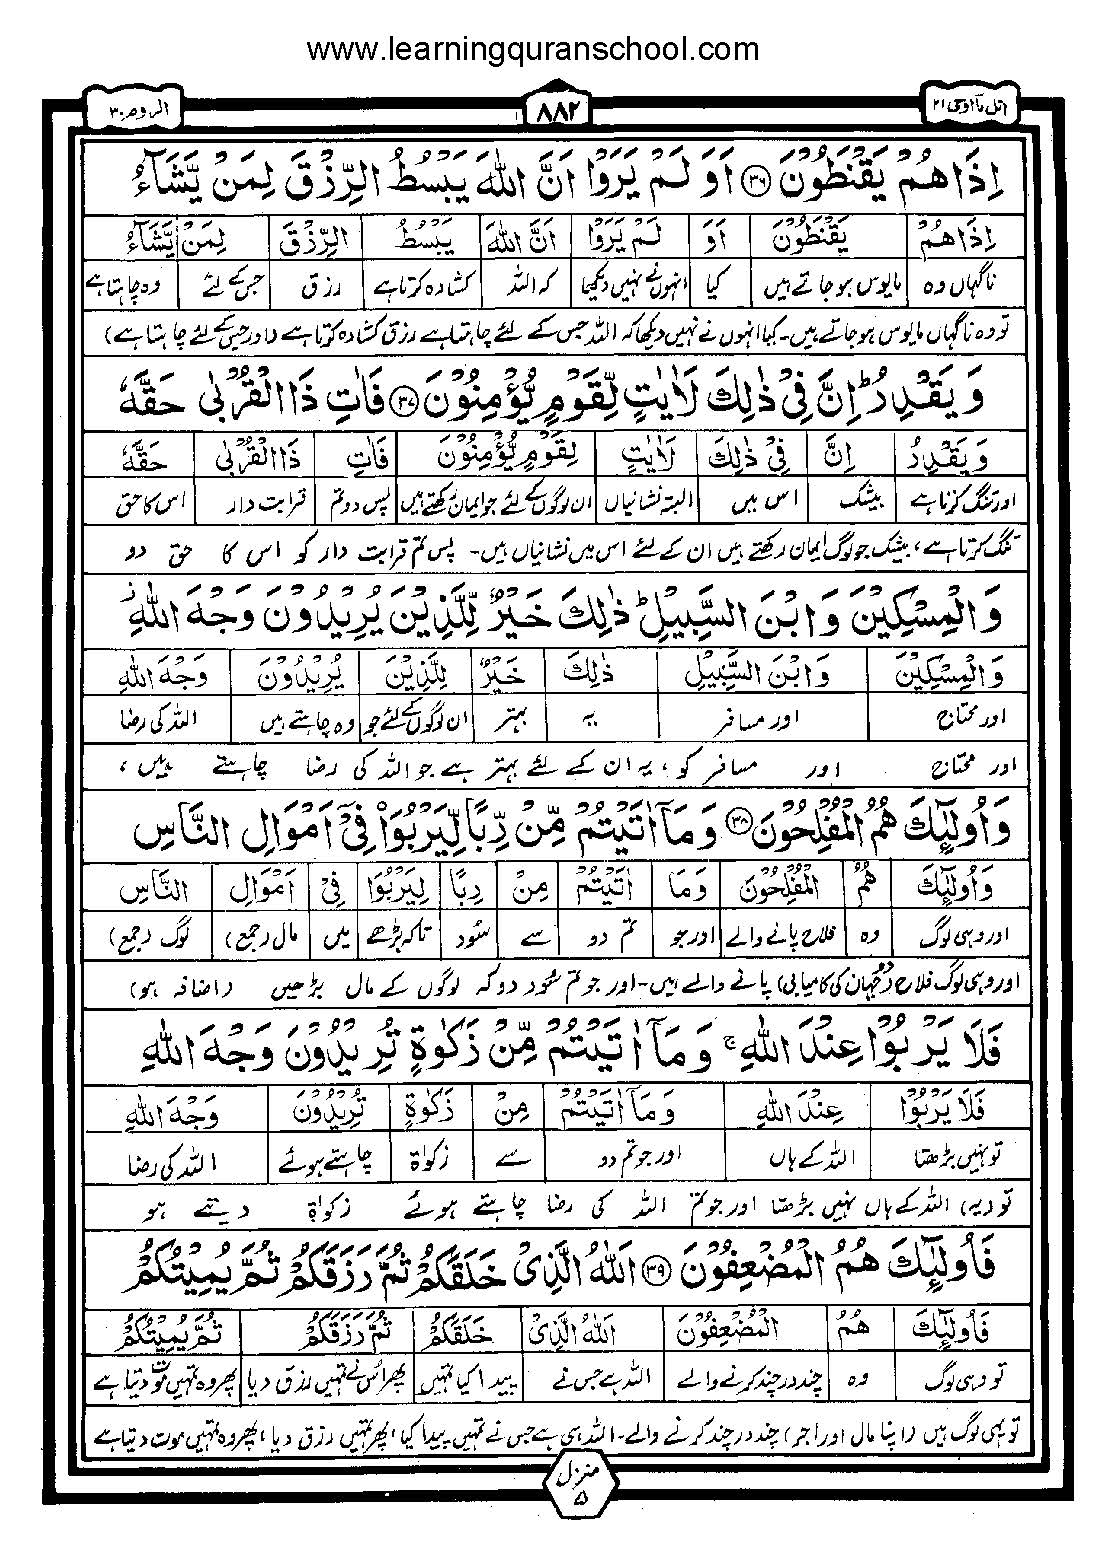 www.learningquranschool.com
اتل مآ اوحی ۲۱ ۸۸۲ الروم ۳۰
اِذَا هُمْ يَقْنَطُوْنَ ۳۶ اَوَ لَمْ يَرَوْا اَنَّ اللّٰهَ يَبْسُطُ الرِّزْقَ لِمَنْ يَّشَآءُ
اِذَا هُمْ يَقْنَطُوْنَ اَوَ لَمْ يَرَوْا اَنَّ اللّٰهَ يَبْسُطُ الرِّزْقَ لِمَنْ يَّشَآءُ
ناگہاں وہ مایوس ہو جاتے ہیں کیا انہوں نے نہیں دیکھا کہ اللہ کشادہ کرتا ہے رزق جس کے لئے وہ چاہتا ہے
تو وہ ناگہاں مایوس ہو جاتے ہیں۔ کیا انہوں نے نہیں دیکھا کہ اللہ جس کے لئے چاہتا ہے رزق کشادہ کرتا ہے (اور جس کے لئے چاہتا ہے)
وَ يَقْدِرُ ؕ اِنَّ فِىْ ذٰلِكَ لَاٰيٰتٍ لِّقَوْمٍ يُّؤْمِنُوْنَ ۳۷ فَاٰتِ ذَا الْقُرْبٰى حَقَّهٗ
وَ يَقْدِرُ اِنَّ فِىْ ذٰلِكَ لَاٰيٰتٍ لِّقَوْمٍ يُّؤْمِنُوْنَ فَاٰتِ ذَا الْقُرْبٰى حَقَّهٗ
اور تنگ کرتا ہے بیشک اس میں البتہ نشانیاں ان لوگوں کے لئے جو ایمان رکھتے ہیں پس دو تم قرابت دار اس کا حق
تنگ کرتا ہے، بیشک جو لوگ ایمان رکھتے ہیں ان کے لئے اس میں نشانیاں ہیں۔ پس تم قرابت دار کو اس کا حق دو
وَ الْمِسْكِيْنَ وَ ابْنَ السَّبِيْلِ ؕ ذٰلِكَ خَيْرٌ لِّلَّذِيْنَ يُرِيْدُوْنَ وَجْهَ اللّٰهِ ۫
وَ الْمِسْكِيْنَ وَ ابْنَ السَّبِيْلِ ذٰلِكَ خَيْرٌ لِّلَّذِيْنَ يُرِيْدُوْنَ وَجْهَ اللّٰهِ
اور محتاج اور مسافر یہ بہتر ان لوگوں کے لئے جو وہ چاہتے ہیں اللہ کی رضا
اور محتاج اور مسافر کو، یہ ان کے لئے بہتر ہے جو اللہ کی رضا چاہتے ہیں،
وَ اُولٰٓئِكَ هُمُ الْمُفْلِحُوْنَ ۳۸ وَ مَآ اٰتَيْتُمْ مِّنْ رِّبًا لِّيَرْبُوَا۠ فِىْٓ اَمْوَالِ النَّاسِ
وَ اُولٰٓئِكَ هُمُ الْمُفْلِحُوْنَ وَ مَا اٰتَيْتُمْ مِنْ رِبًا لِيَرْبُوَا فِىْ اَمْوَالِ النَّاسِ
اور وہی لوگ وہ فلاح پانے والے اور جو تم دو سے سُود تاکہ بڑھے میں مال (جمع) لوگ (جمع)
اور وہی لوگ فلاح (دو جہان کی کامیابی) پانے والے ہیں۔ اور جو تم سُود دو کہ لوگوں کے مال بڑھیں (اضافہ ہو)
فَلَا يَرْبُوْا عِنْدَ اللّٰهِ ۚ وَ مَآ اٰتَيْتُمْ مِّنْ زَكٰوةٍ تُرِيْدُوْنَ وَجْهَ اللّٰهِ
فَلَا يَرْبُوْا عِنْدَ اللّٰهِ وَ مَآ اٰتَيْتُمْ مِنْ زَكٰوةٍ تُرِيْدُوْنَ وَجْهَ اللّٰهِ
تو نہیں بڑھتا اللہ کے ہاں اور جو تم دو سے زکوٰۃ چاہتے ہوئے اللہ کی رضا
تو (یہ) اللہ کے ہاں نہیں بڑھتا اور جو تم اللہ کی رضا چاہتے ہوئے زکوٰۃ دیتے ہو
فَاُولٰٓئِكَ هُمُ الْمُضْعِفُوْنَ ۳۹ اَللّٰهُ الَّذِىْ خَلَقَكُمْ ثُمَّ رَزَقَكُمْ ثُمَّ يُمِيْتُكُمْ
فَاُولٰٓئِكَ هُمُ الْمُضْعِفُوْنَ اَللّٰهُ الَّذِىْ خَلَقَكُمْ ثُمَّ رَزَقَكُمْ ثُمَّ يُمِيْتُكُمْ
تو وہی لوگ وہ چند در چند کرنے والے اللہ ہے جس نے پیدا کیا تمہیں پھر اس نے تمہیں رزق دیا پھر وہ تمہیں موت دیتا ہے
تو یہی لوگ ہیں (اپنا مال اور اجر) چند در چند کرنے والے۔ اللہ ہی ہے جس نے تمہیں پیدا کیا، پھر تمہیں رزق دیا، پھر وہ تمہیں موت دیتا ہے
منزل ۵